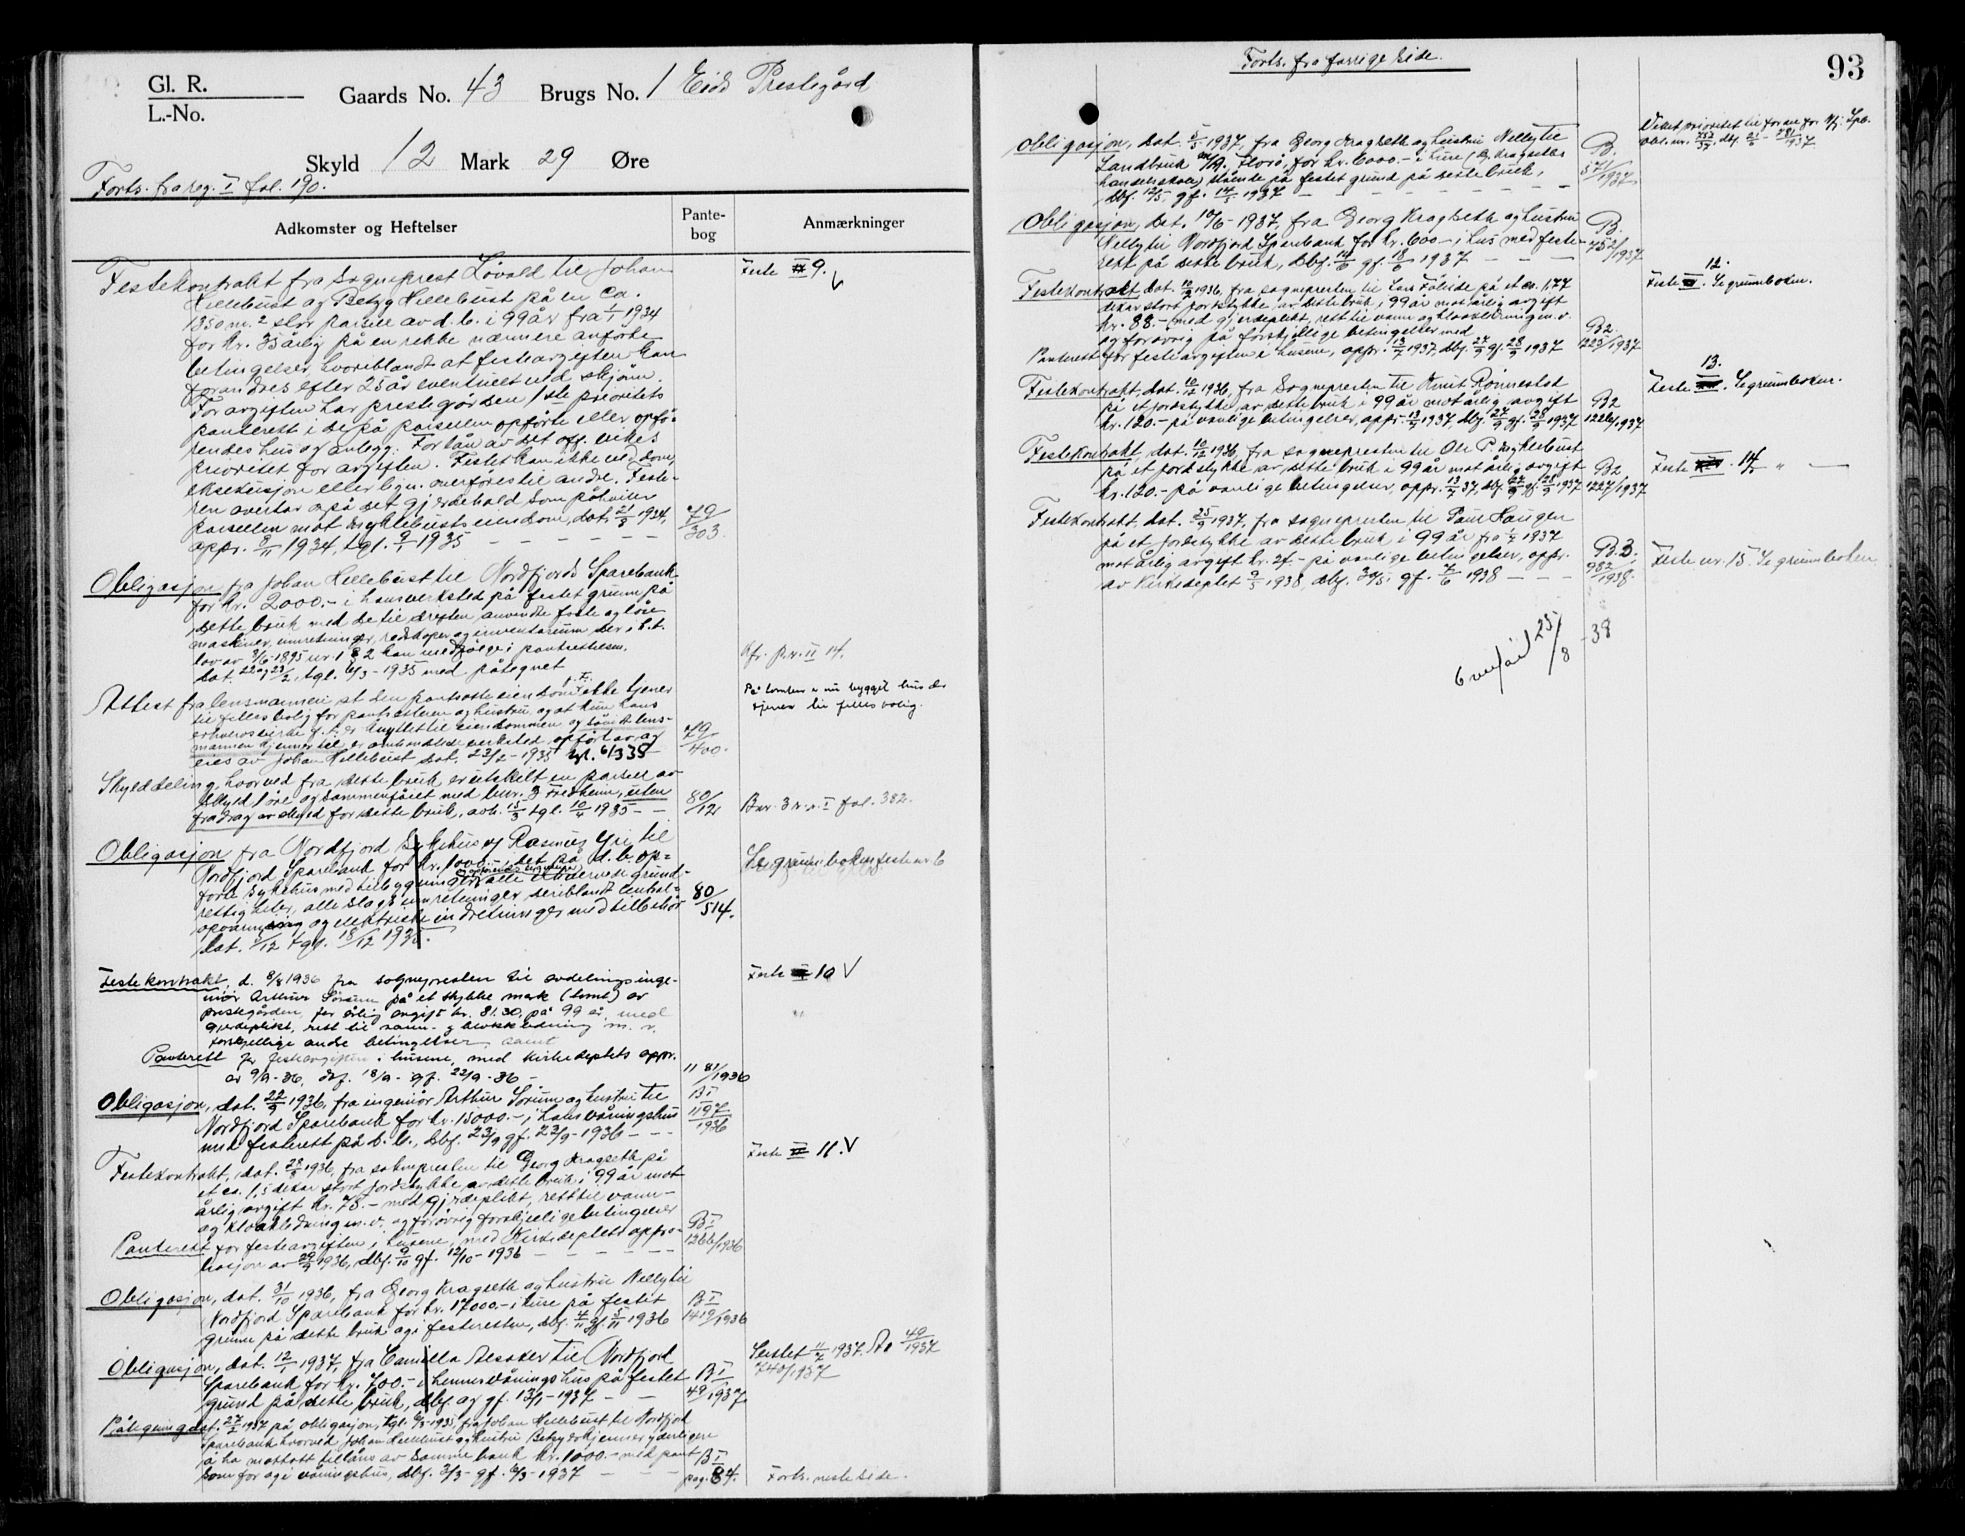 Gl. R.
L.-No.
Gaards No. 43 Brugs No. 1 Eids Prestegård
Skyld 12 Mark 29 Øre
Forts. fra reg. I fol. 190.
Adkomster og Heftelser
Pante-
bog
Anmærkninger
Festekontrakt fra sogneprest Løvold til Johan
Hillebust og Betzy Hillebust på en ca.
1350 m.² stor parsell av d. b. i 99 år fra 1/1 1934
for kr. 35 årlig på en rekke nærmere anførte
betingelser, hvoriblandt at festeavgiften kan
forandres efter 25 år eventuelt ved skjønn.
For avgiften har prestegården 1ste prioritets
panterett i de på parsellen opførte eller opfø-
rendes hus og anlegg. For lån av det off. vikes
prioritet for avgiften. Festet kan ikke ved dom,
eksekusjon eller lign. overføres til andre. Feste-
ren overtar også det gjerdehold som påhviler
parsellen mot Myklebusts eiendom, dat. 21/9 1934,
appr. 9/11 1934, tgl. 9/1 1935
79/303.
Feste 9.
Obligasjon fra Johan Hillebust til Nordfjord Sparebank
for kr. 2000.- i hans verksted på festet grunn på
dette bruk med de til driften anvendte faste og løse
maskiner, innretninger, redskaper og inventarium der i h.t.
lov av 8/6-1895 nr. 1 § 2 kan medfølge i pantsettelsen.
dat. 22 og 23/2, tgl. 6/3-1935 med påtegnet
Afr. p.r. II 14.
Attest fra lensmannen at den pantsatte eiendom f. t. ikke tjener
til felles bolig for pantsetteren og hustru og at kun hans
erhvervsvirke f. t. er knyttet til eiendommen og såvidt lens-
mannen kjenner til, er omhandlede verksted opført av og
eies av Johan Hillebust dat. 23/2-1935 tgl. 6/3 35
79/400.
På tomten er nu bygget hus der
tjener til felles bolig.
Skylddeling, hvorved fra dette bruk er utskilt en parsell av
skyld 1 øre og sammenføiet med bnr. 3 Fredheim, uten
fradrag av skyld for dette bruk, avh. 15/3 tgl. 10/4 1935
80/121
Bnr. 3 n.r. I fol. 382.
Obligasjon fra Nordfjord Sykehus v/ Rasmus Yri til
Nordfjord Sparebank for kr. 1000.-, i det på d. b. op-
førte sykehus med tilbygninger, alle tilhørende grund-
rettigheter, alle slags innretninger deriblandt central-
opvarming og elektriske indretninger med tilbehør
dat. 5/12 tgl. 18/12 1935.
80/514.
Se grunnboken feste nr. 6
Festekontrakt, d. 8/8 1936 fra sognepresten til avdelingsinge-
niør Arthur Sørum på et stykke mark (tomt) av
prestegården, for årlig avgift kr. 81.30, på 99 år, med
gjerdeplikt, rett til vann- og kloakkledning m. v.
forskjellige andre betingelser, samt
Panterett for festeavgiften i husene, med Kirkedeptets appr.
av 9/9-36, dbf. 18/9- gf. 22/9-36 -
1181/1936
Feste 10 V
Obligasjon, dat. 22/9 1936, fra ingeniør Arthur Sørum og hustru til
Nordfjord Sparebank for kr. 15000.-, i hans våningshus
med festerett på d. b., dbf. 23/9 gf. 23/9-1936
B I
1197/1936
Festekontrakt, dat. 28/8 1936, fra soknepresten til Georg Kragseth på
et ca. 1,5 dekar stort jordstykke av dette bruk i 99 år mot
årlig avgift kr. 75.- med gjerdeplikt, rett til vann-
og kloakkledning m. v. og forøvrig forskjellige betingelser
Panterett for festeavgiften i husene, med Kirkedeptets appro-
basjon av 29/9 1936, dbf. 9/10 gf. 12/10-1936
B I
1266/1936
Feste 11. V
Obligasjon, dat. 31/10 1936, fra Georg Kragseth og hustru Nelly til
Nordfjord Sparebank for kr. 17000.- i huse på festet
grunn på dette bruk og i festeretten, dbf. 4/11 gf. 5/11 1936
B I
1419/1936
Obligasjon, dat. 12/1 1937, fra Camilla Aesoker til Nordfjord
Sparebank for kr. 700.- i hennes våningshus på festet
grund på dette bruk, dbf. og gf. 13/1-1937
B I
49/1937
Slettet 11/7 1937. No 49/1937
740/1937
Påtegning dat. 27/2 1937 på obligasjon, tgl. 6/3-1935, fra Johan Hillebust til Nordfjord
Sparebank hvorved Johan Hillebust og hustru Betzy erkjenner yderligere
å ha mottatt til låns av samme bank kr. 1000.- med pant
som før og i våningshus, dbf. 3/3- gf. 6/3-1937
B I
pag. 84.
Forts. neste side.
93
Forts. fra forrige side.
Obligasjon, dat. 5/5 1937, fra Georg Kragseth og hustru Nelly til
Landbruk A/S, Florø, for kr. 6000.- i huse (G. Kragseths
handelsskole) stående på festet grund på dette bruk,
dbf. 12/5, gf. 14/5 1937
B.
571/1937
Veket prioritet til for an for Nfj. Spb.
obl. nr. 752/37, dbf. 21/6 - 781/1937
Obligasjon, dat. 10/6-1937, fra Georg Kragseth og hustru
Nelly til Nordfjord Sparebank for kr. 600.- i hus med feste-
rett på dette bruk, dbf. 14/6 gf. 15/6 1937
B.
752/1937
Festekontrakt dat. 10/12 1936, fra sognepresten til Lars Fålside på et ca. 1,77
dekar stort jordstykke av dette bruk i 99 år mot årlig avgift
kr. 88.- med gjerdeplikt, rett til vann og kloakkledning m. v.
og forøvrig på forskjellige betingelser med
Panterett for festeavgiften i husene, appr. 13/7 1937, dbf. 27/9 gf. 28/9 1937
B2.
1225/1937
12.
Feste. Se grunnboken.
Festekontrakt, dat. 10/12 1936, fra Sognepresten til Knut Rønnestad
på et jordstykke av dette bruk i 99 år mot årlig avgift
kr. 120.- på vanlige betingelser, appr. 13/7 1937, dbf. 27/9 gf. 28/9 1937
B2
1226/1937
13.
Feste. Se grunnboken.
Festekontrakt, dat. 10/12 1936, fra sognepresten til Ole P. Myklebust
på et jordstykke av dette bruk i 99 år mot årlig avgift
kr. 120.- på vanlige betingelser, appr. 13/7 37, dbf. 27/9 gf. 28/9 1937
B2
1227/1937
Feste 14 "
Festekontrakt, dat. 25/9 1937, fra sognepresten til Paul Haugen
på et jordstykke av dette bruk i 99 år fra 1/7 1937
mot årlig avgift kr. 27.- på vanlige betingelser, appr.
av Kirkedeptet 9/5 1938, dbf. 30/5, gf. 7/6 1938
B.3.
982/1938.
Feste nr. 15 Se grunnboken
Overført 25/8-38